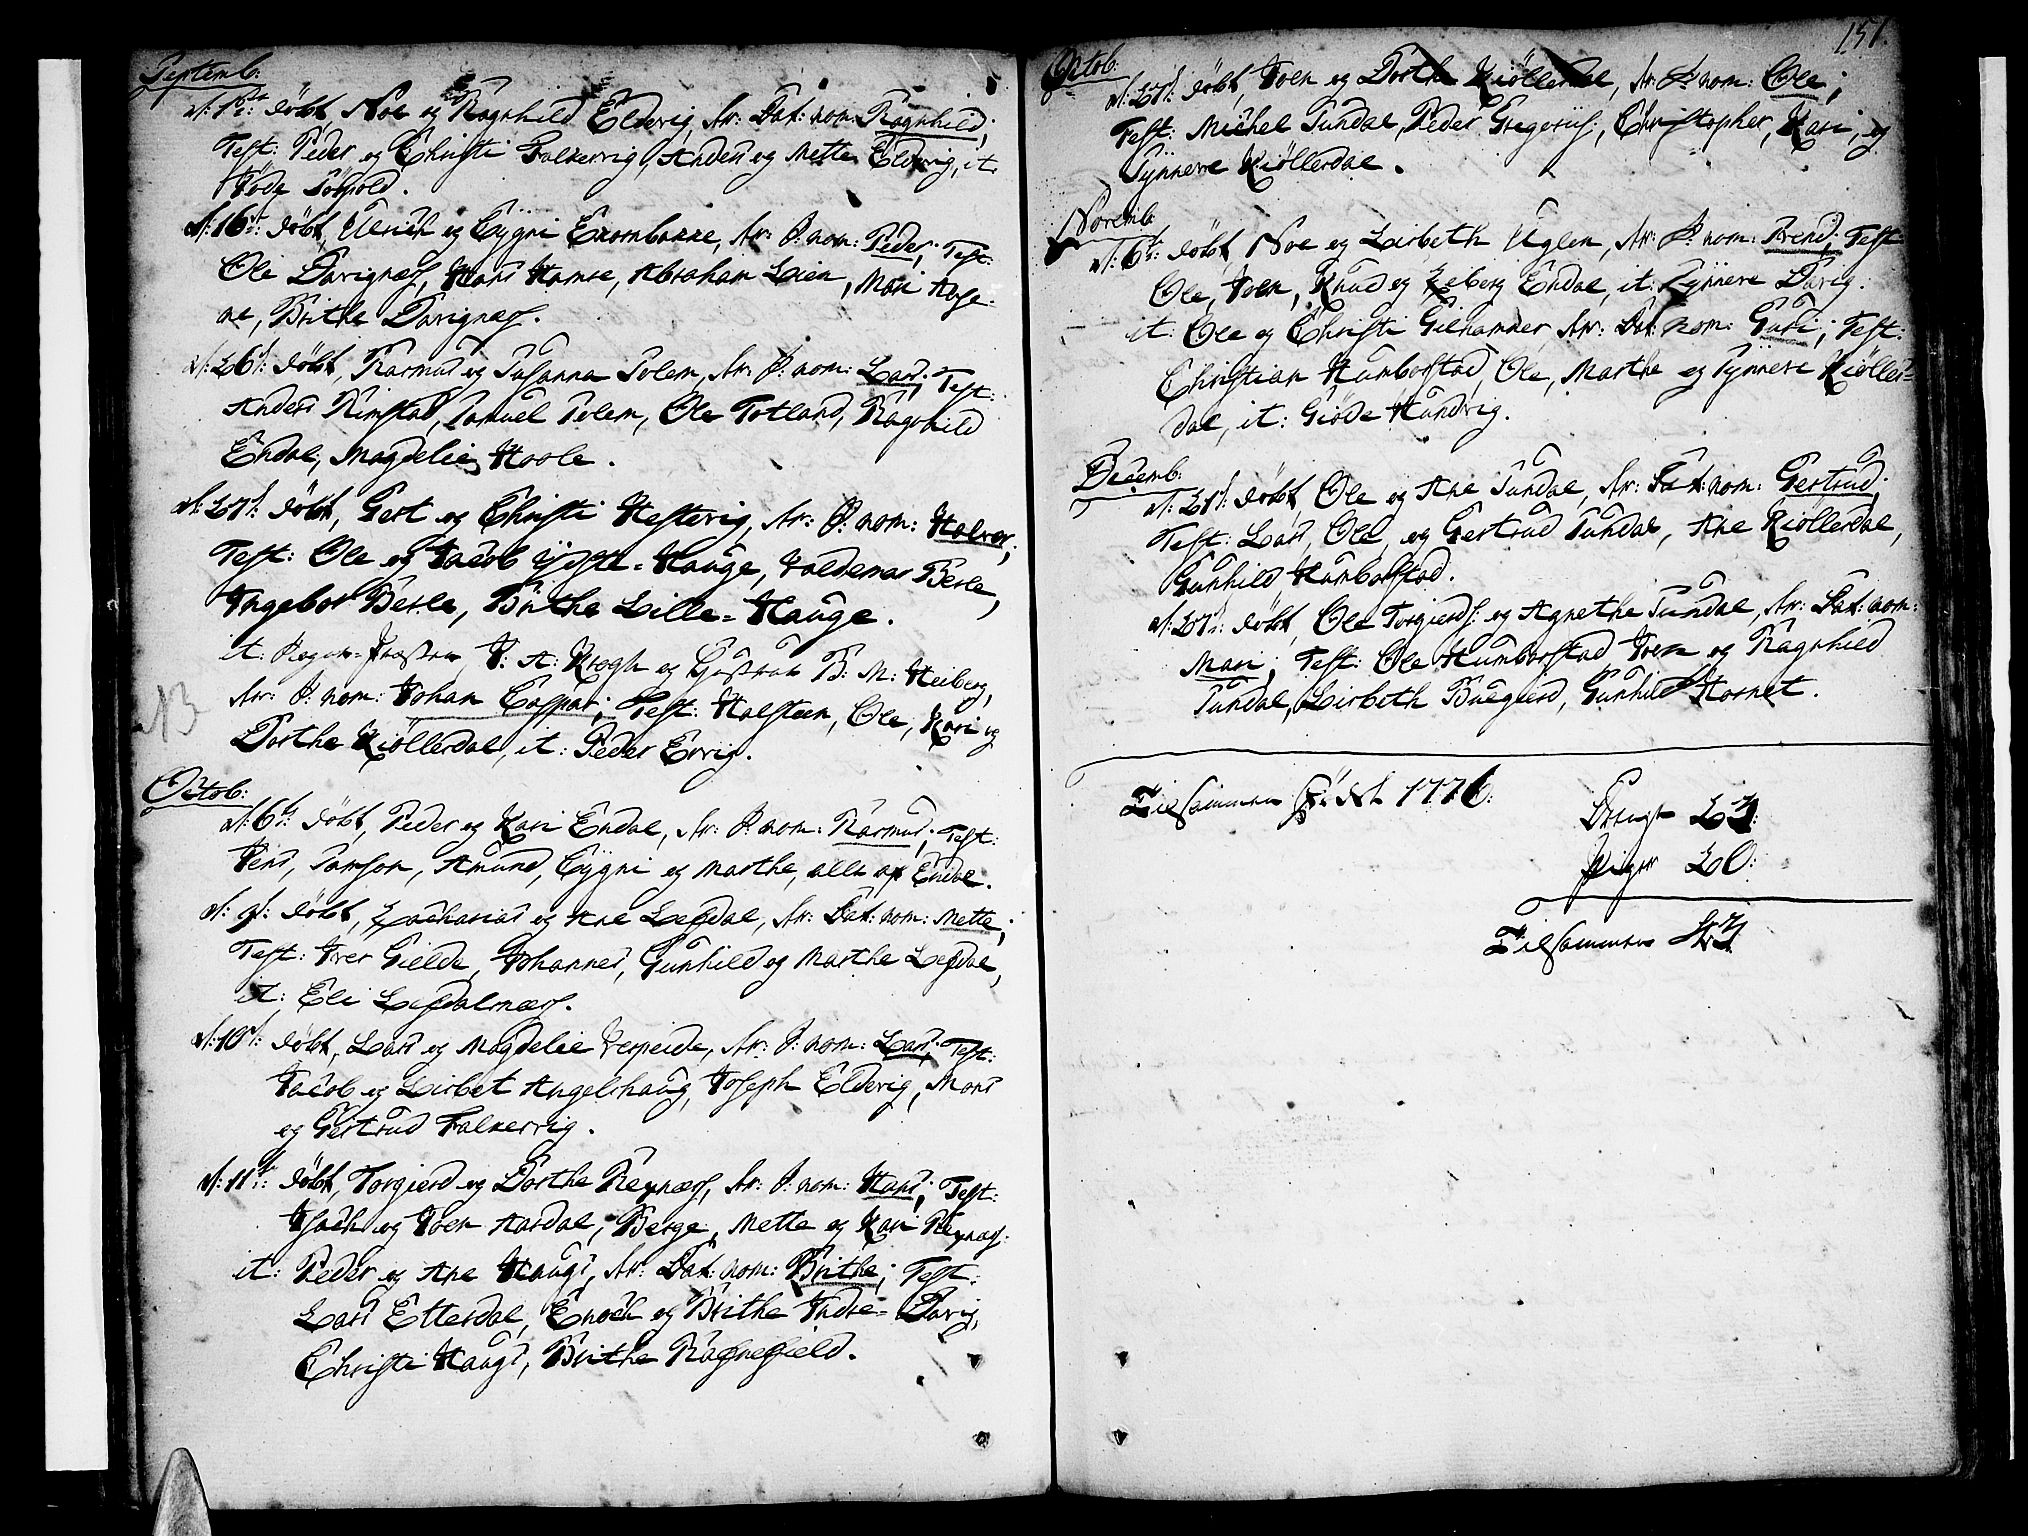 Septemb:
d: 1ste döbt, Noe og Ragnhild Eldevig, Ar: Dat: nom: Ragnhild;
Test: Peder og Christi Falkevig, Anders og Mette Eldevig, it:
Jöde
d: 16d: döbt, Ulrich og Gygni Exornbakke, Ar: P: nom: Peder; Test:
Ole Davignæs, Hans Hamre, Abraham Lien, Mari Aase-
ne, Brithe Davignæs.
d: 26d: döbt, Rasmus og Susanna Solem, Ar: P: nom: Lars; Test:
Anders Rimstad, Samuel Solem, Ole Totland, Ragnhild
Endal, Magdeli Hoole.
d: 27d: döbt, Gert og Christi Hestevig, Ar: P: nom: Halvor;
Test: Ole og Jacob Ydste-Hauge, Valdemar Berle,
Ingebor Berle, Brithe Lille-Hauge.
it: Sogne-Præsten J: A: Krogh og Hustrue B: M: Heiberg,
Ar: P: nom: Johan Caspar; Test: Halsteen, Ole, Kari og
Dorthe Kiöllerdal, it: Peder Ervig.
Octob:
d: 6d: döbt, Peder og Kari Endal, Ar: P: nom: Rasmus; Test:
Jens, Samson, Amund, Gygni og Marthe, alle af Endal.
d: 9d: döbt, Zacharias og Ane Lefdal, Ar: Dat: nom: Mette;
Test: Iver Gielde, Johannes, Gunhild og Marthe Lefdal,
it: Eli Lefdalsnæss.
d: 10d: döbt, Lars og Magdelie Verpeide, Ar: P: nom: Lars; Test:
Jacob og Lisbet Angelshaug, Joseph Eldevig, Mons
og Gertrud Falkevig.
d: 11te: döbt, Torgierd og Dorthe Revnæss, Ar: P: nom: Hans; Test:
Isach og Joen Aardal, Berge, Mette og Kari Revnæs.
it: Peder og Ane Haugs, Ar: Dat: nom: Brithe; Test:
Lars Etterdal, Enoch og Brithe Indre-Davig,
Christi Haugs, Brithe Rafnefield.
151.
Octob:
d: 27d: döbt, Joen og Dorthe Kiöllerdal, Ar: P: nom: Ole;
Test: Michel Sundal, Peder Gregorius, Christopher, Kari, og
Synneve Kiöllerdal.
Novemb:
d: 6d: döbt, Noe og Lisbeth Uglen, Ar: P: nom: Arend; Test:
Ole, Joen, Knud og Zeberg Endal, it: Synneve Davig.
it: Ole og Christi Gilhammer, Ar: Dat: nom: Guri; Test:
Christian Humborstad, Ole, Marthe og Synneve Kiöller-
dal, it: Giöde Hundvig.
Decemb:
d: 21d: döbt, Ole og Ane Sundal, Ar: Dat: nom: Gertrud;
Test: Lars, Ole, og Gertrud Sundal, Ane Kiöllerdal,
Gunhild Humborstad.
d: 27d: döbt, Ole Torgierds: og Agnethe Sundal, Ar: Dat: nom:
Mari; Test: Ole Humborstad Joen og Ragnhild
Sundal, Lisbeth Buegierd, Gunhild Hornet.
Tilsammen Födt 1776:
Drenge 23:
Piger 20:
Tilsammen 43